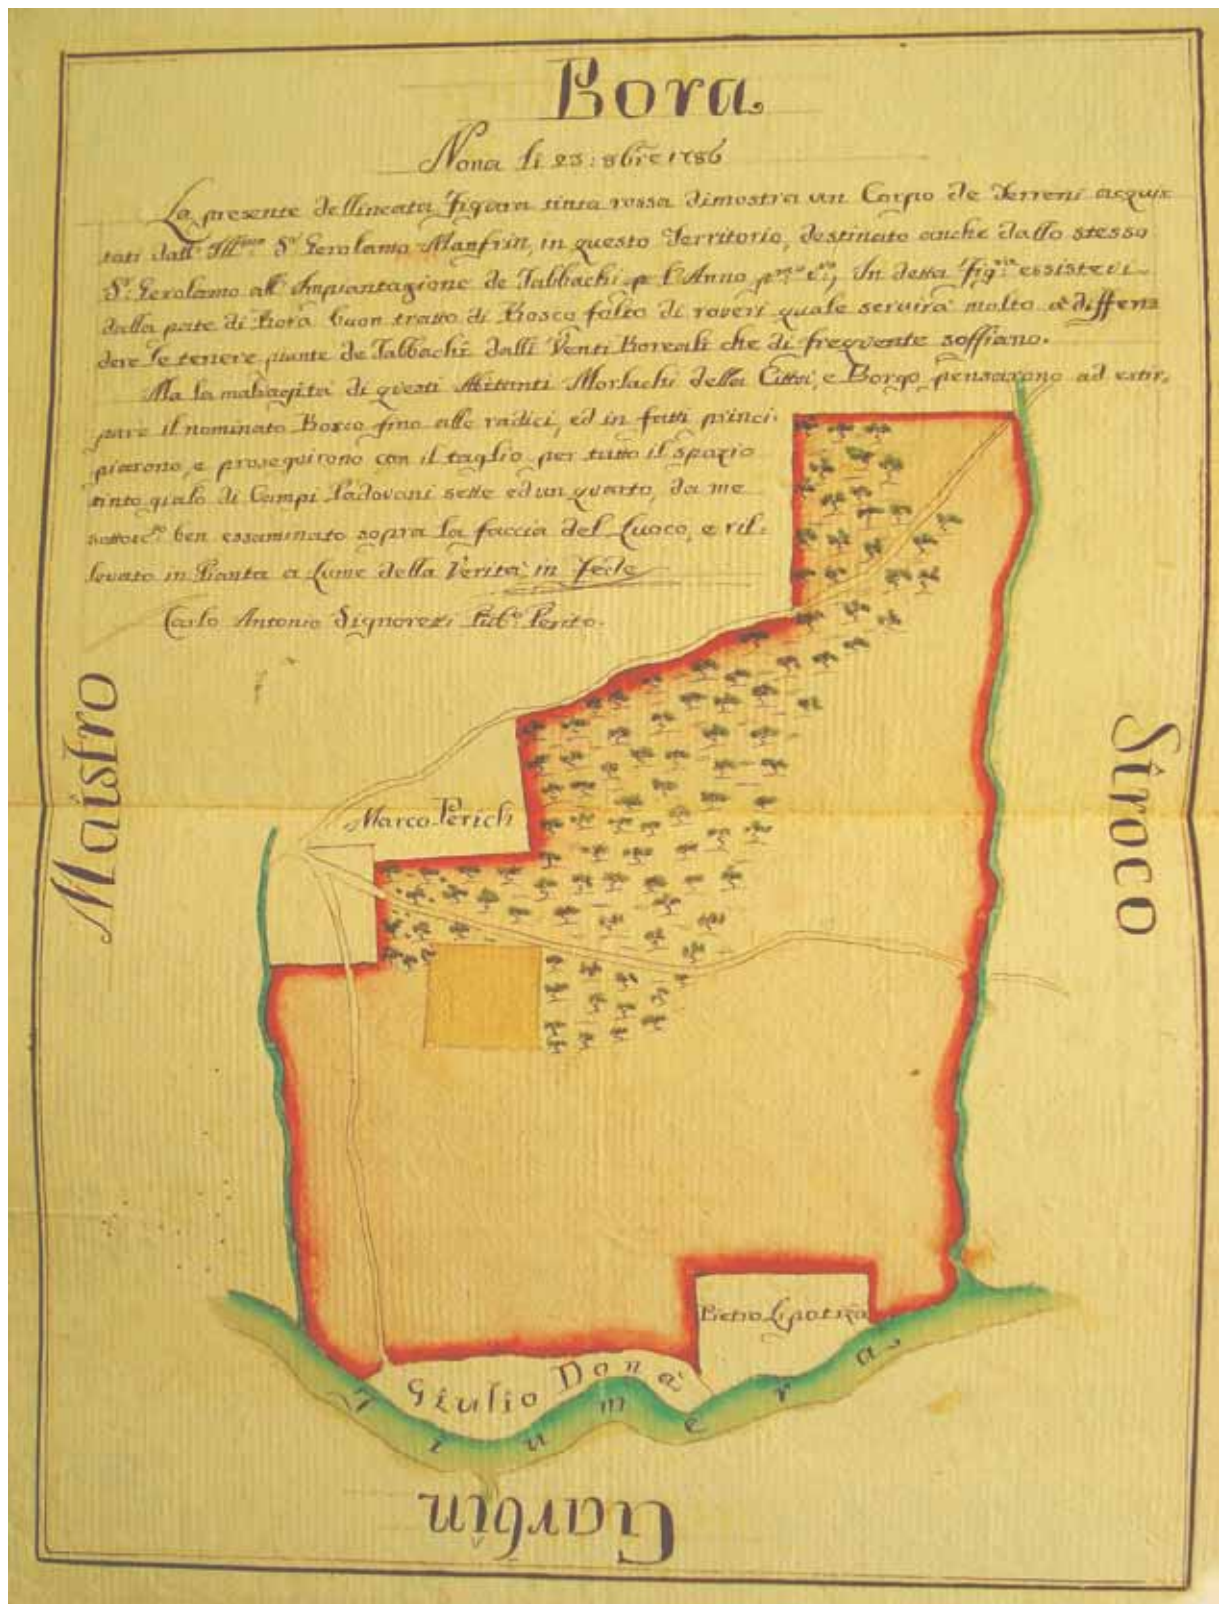 Bora
Nona li 23: 8bre 1786
La presente dellineata Figura tinta rossa dimostra un Corpo de Terreni acquis
tati dall' Ill.mo S.r Gerolamo Manfrin, in questo Territorio, destinato anche dallo stesso
S.r Gerolamo all' Impiantagione de Tabbachi p l'Anno In detta Fig.ra essistevi
dalla parte di Bora buon tratto di Bosco folto di roveri quale servirà molto à diffen
dere le tenere piante de Tabbachi dalli Venti Boreali che di frequente soffiano.
Ma la malvagità di questi Abitanti Morlachi della Città, e Borgo pensarono ad estir,
pare il nominato Bosco fino alle radici, ed in fatti princi,
piarono, e proseguirono con il taglio per tutto il spazio
tinto gialo di Campi Padovani sette ed un quarto, da me
sottosc.to ben essaminato sopra la faccia del Luoco, e ril:
levato in Pianta a Lume della Verità in Fede
Carlo Antonio Signoretti Pub.o Perito.
Maistro
Siroco
Marco Perich
Pietro
Giulio Donà
Fiumera
Garbin